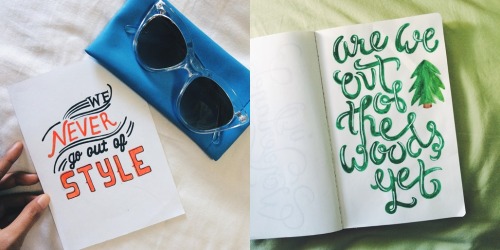 WE
NEVER
go out of
STYLE
are we
out
of
the
woods
yet